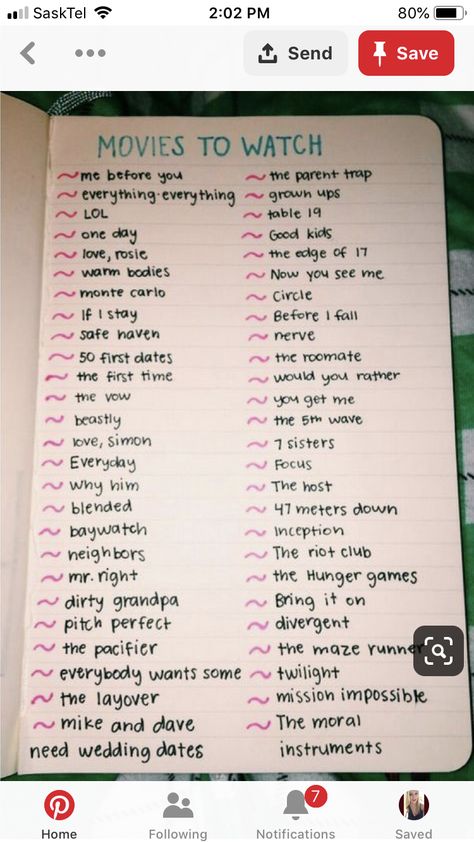 SaskTel 2:02 PM 80%
Send Save
MOVIES TO WATCH
~me before you
~everything·everything
~LOL
~one day
~love, rosie
~warm bodies
~monte carlo
~If I stay
~safe haven
~50 first dates
~the first time
~the vow
~beastly
~love, simon
~Everyday
~why him
~blended
~baywatch
~neighbors
~mr. right
~dirty grandpa
~pitch perfect
~the pacifier
~everybody wants some
~the layover
~mike and dave
need wedding dates
~the parent trap
~grown ups
~table 19
~Good kids
~the edge of 17
~Now you see me
~Circle
~Before I fall
~nerve
~the roomate
~would you rather
~you get me
~the 5th wave
~7 sisters
~Focus
~The host
~47 meters down
~Inception
~The riot club
~the Hunger games
~Bring it on
~divergent
~the maze runner
~twilight
~mission impossible
~The moral
instruments
7
Home Following Notifications Saved